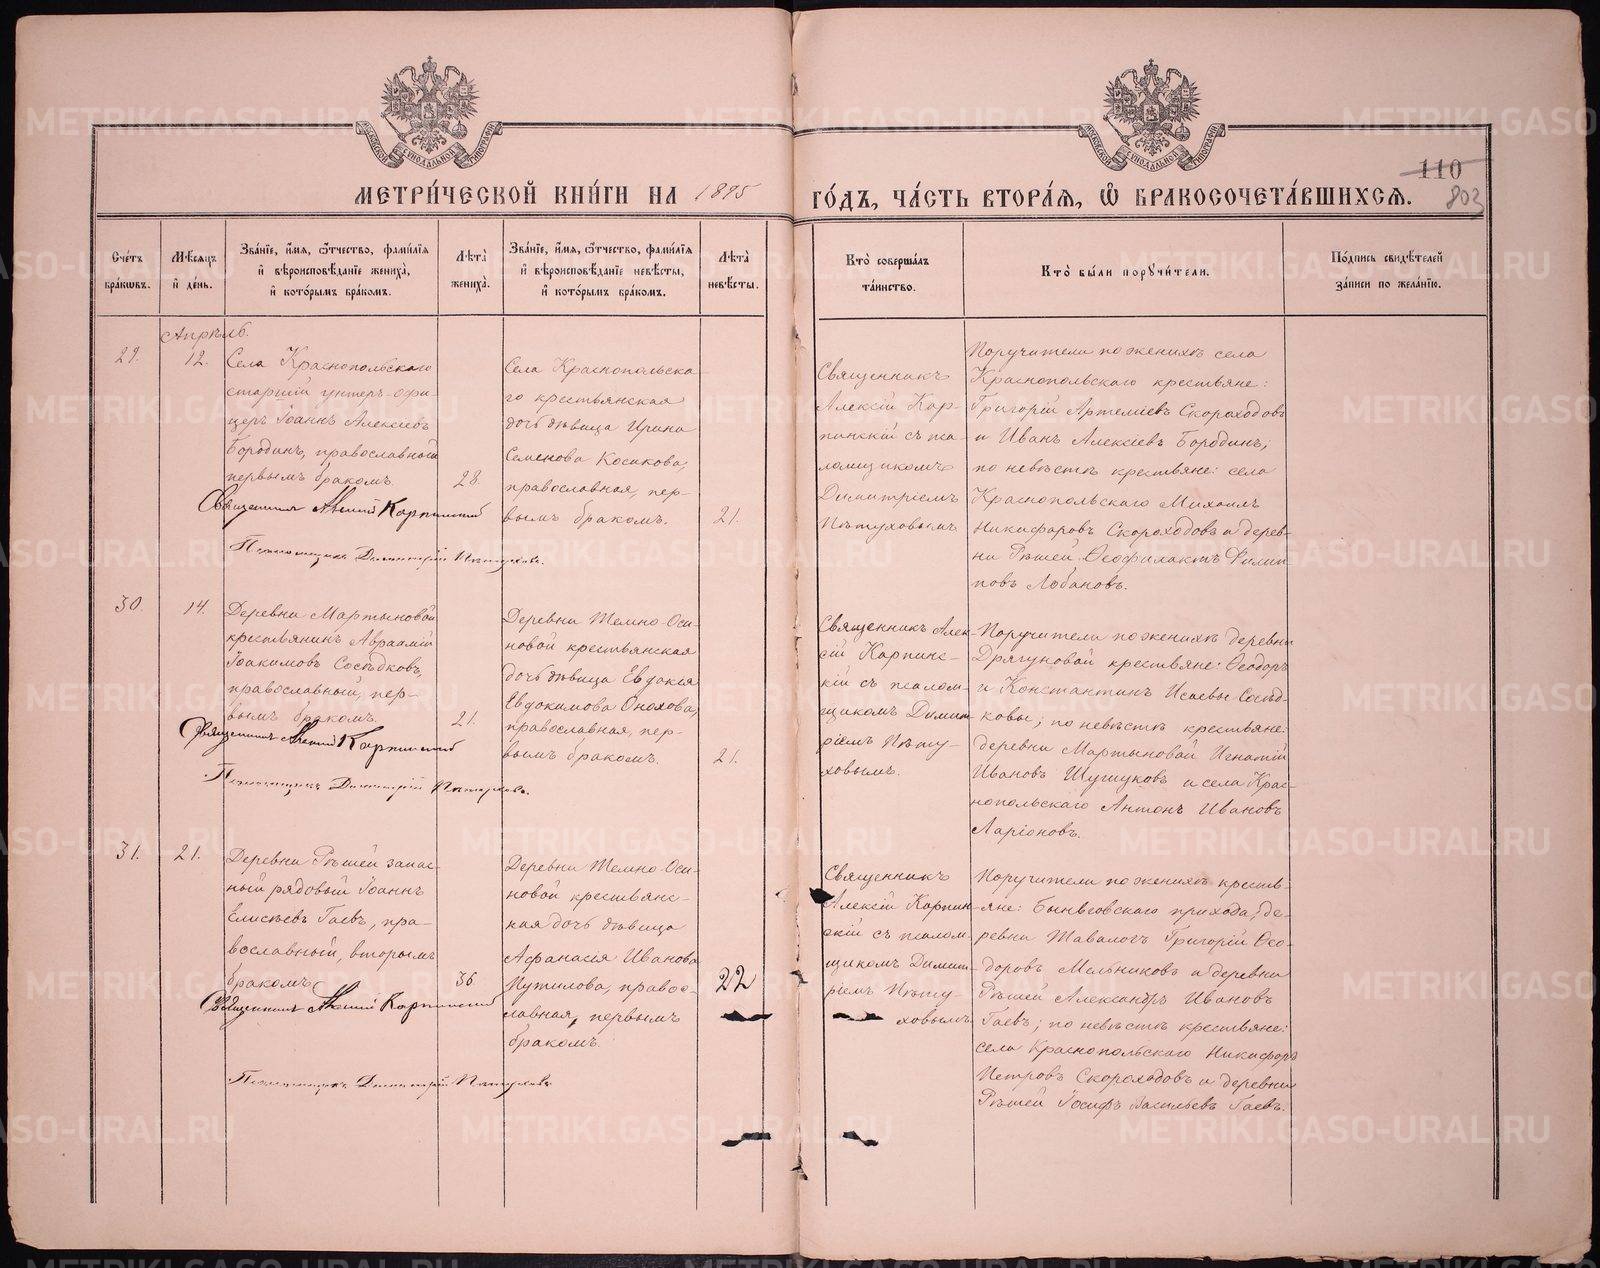 МЕТРИ́ЧЕСКОЙ КНИ́ГИ НА 1895 ГО́ДЪ, ЧА́СТЬ ВТОРА́Я, Ѽ БРАКОСОЧЕТА́ВШИХСЯ.
110
803
Сче́тъ бра́кѡвъ.
Мѣ́сяцъ и҆ де́нь.
Зва́нїе, и҆́мя, ѻ҆́тчество, фами́лїя и҆ вѣроисповѣ́данїе жениха̀, и҆ кото́рымъ бра́комъ.
Лѣ́та жениха̀.
Зва́нїе, и҆́мя, ѻ҆́тчество, фами́лїя и҆ вѣроисповѣ́данїе невѣ́сты, и҆ кото́рымъ бра́комъ.
Лѣ́та невѣ́сты.
Кто̀ соверша́лъ та́инство.
Кто̀ бы́ли порꙋчи́тели.
По́дпись свидѣ́телей за́писи по жела́нїю.
Апрѣль.
29.
12.
Села Краснопольскаго
старшій унтеръ-офи-
церъ Іоаннъ Алексѣевъ
Бородинъ, православный
первымъ бракомъ.
28.
Священникъ Алексій Карпинскій
Псаломщикъ Димитрій Пѣтуховъ.
Села Краснопольска-
го крестьянская
дочь дѣвица Ирина
Семенова Косикова,
православная, пер-
вымъ бракомъ.
21.
Священникъ
Алексій Кар-
пинскій съ пса-
ломщикомъ
Димитріемъ
Пѣтуховымъ
Поручители по женихѣ села
Краснопольскаго крестьяне:
Григорій Артеміевъ Скороходовъ
и Иванъ Алексѣевъ Бородинъ;
по невѣстѣ крестьяне: села
Краснопольскаго Михаилъ
Никифоровъ Скороходовъ и дерев-
ни Рѣшей Ѳеофилактъ Филип-
повъ Лобановъ.
30.
14.
Деревни Мартыновой
крестьянинъ Авраамій
Іоакимовъ Сосѣдковъ,
православный, пер-
вымъ бракомъ.
21.
Священникъ Алексій Карпинскій
Псаломщикъ Димитрій Пѣтуховъ.
Деревни Темно-Оси-
новой крестьянская
дочь дѣвица Евдокія
Евдокимова Онохова,
православная, пер-
вымъ бракомъ.
21.
Священникъ Алек-
сій Карпинс-
кій съ псалом-
щикомъ Димит-
ріемъ Пѣту-
ховымъ.
Поручители по женихѣ деревни
Дрягуновой крестьяне: Ѳеодоръ
и Константинъ Исаевы Сосѣд-
ковы; по невѣстѣ крестьяне:
деревни Мартыновой Игнатій
Ивановъ Шушуковъ и села Крас-
нопольскаго Антонъ Ивановъ
Ларіоновъ.
31.
21.
Деревни Рѣшей запас-
ный рядовый Іоаннъ
Елисѣевъ Гаевъ, пра-
вославный, вторымъ
бракомъ.
36.
Священникъ Алексій Карпинскій
Псаломщикъ Димитрій Пѣтуховъ
Деревни Темно-Оси-
новой крестьянс-
кая дочь дѣвица
Афанасія Иванова
Путилова, правос-
лавная, первымъ
бракомъ.
22
Священникъ
Алексій Карпин-
скій съ псалом-
щикомъ Димит-
ріемъ Пѣту-
ховымъ
Поручители по женихѣ кресть-
яне: Бынговскаго прихода, де-
ревни Тавологъ Григорій Ѳео-
доровъ Мельниковъ и деревни
Рѣшей Александръ Ивановъ
Гаевъ; по невѣстѣ крестьяне:
села Краснопольскаго Никифоръ
Петровъ Скороходовъ и деревни
Рѣшей Іосифъ Васильевъ Гаевъ.